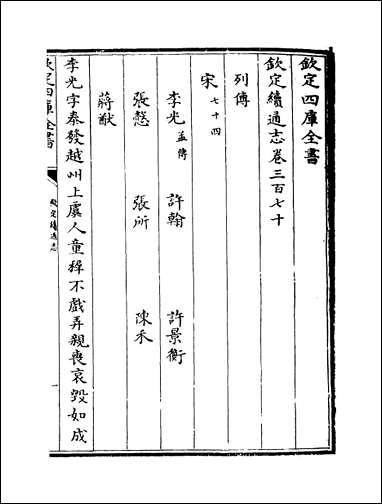 欽定四庫全書
欽定續通志卷三百七十
列傳
宋 七十四
李光 孟傳 許翰 許景衡
張慤 張所 陳禾
蔣猷
李光字泰發越州上虞人童稺不戲弄親喪哀毀如成
欽定四庫全書
欽定續通志
一